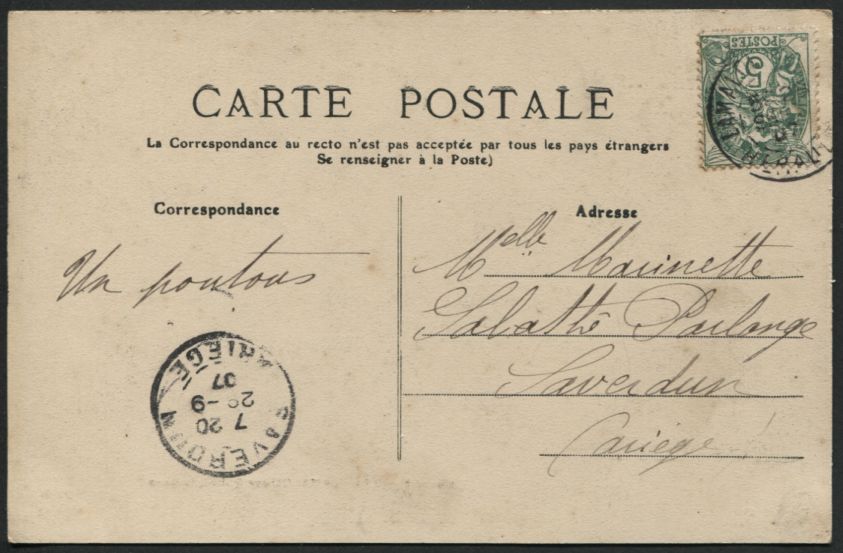 CARTE POSTALE
La Correspondance au recto n'est pas acceptée par tous les pays étrangers
Se renseigner à la Poste)
Correspondance
Adresse
Un poutous
Melle Marinette
Sabathé
Saverdun
Ariége
POSTES
5
HÉRAULT
SAVERDUN
7 20
-9
07
ARIÈGE